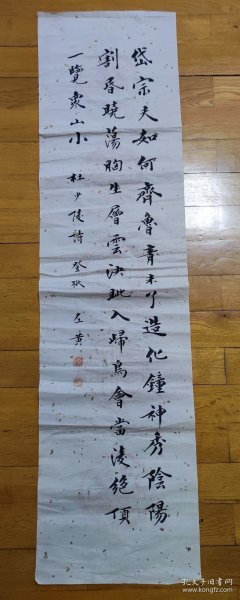 岱宗夫如何齊魯青未了造化鐘神秀陰陽
割昏曉蕩胸生層雲決眦入歸鳥會當淩絕頂
一覽衆山小 杜少陵詩 登嶽
孔夫子旧书网